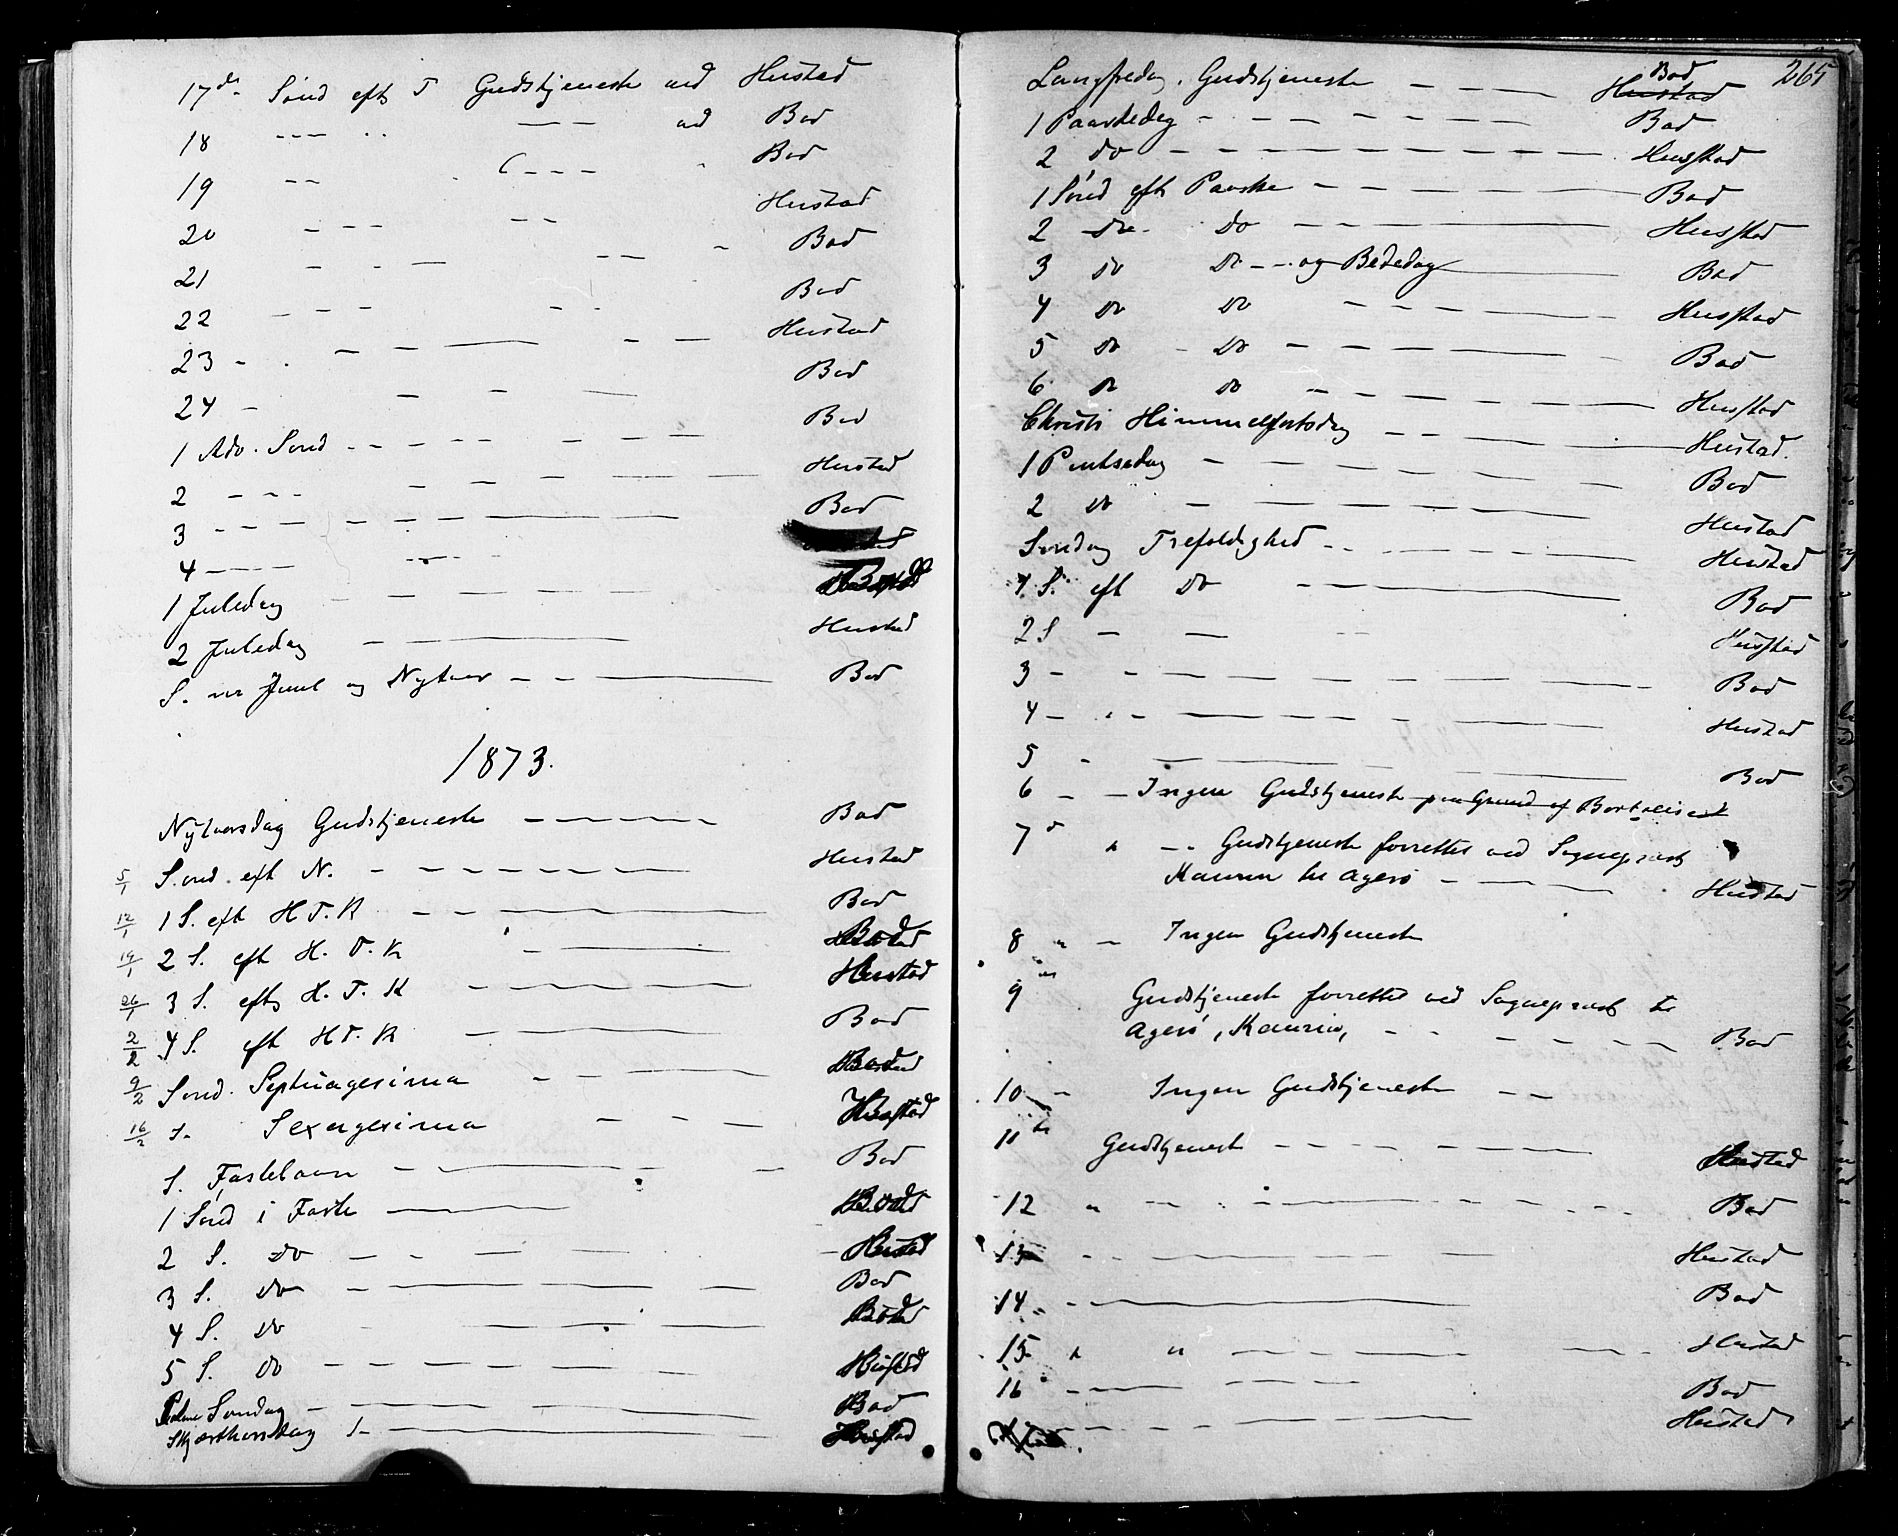 17de Sönd eft T Gudstjeneste ved Hustad
18 --- -- --- ved Bod
19 -- --- Bod
20 --- -- Hustad
21 - - - -- - Bod
22 --- - - Bod
23 - - - - - - - Hustad
24 - - - - Bod
1 Adv. Sönd - - - - - - - Bod
2 - - - - - - - - Hustad
3 - - - - - - - - Bod
4 - - - - - -
1 Juledag - - - - - -
2 Juledag - - - - Hustad
S. m Juul og Nytaar - - - Bod
1873.
Nytaarsdag Gudstjeneste - - - - - Bod
5/1 Sönd. eft N. - - - - - - - Hustad
12/1 1 S. eft H T. K - - - - - Bod
19/1 2 S. eft H. T. K - - - Bod
26/1 3 S. eft H. T. K - - - - - Hustad
2/2 4 S. eft H T. K - - - - Bod
9/2 Sönd. Septuagesima - - - -
16/2 S. Sexagesima - - - Hustad
S. Fastelavn - - - - Bod
1 Sönd i Faste - - - Bod
2 S. Do - - - - - - Hustad
3 S. Do - - - - - - Bod
4 S. Do - - - - - Bod
5 S. Do - - - - - - - Hustad
Palme Söndag - - - - - - - Bod
Skjærthorsdag - - - Hustad
265
Langfredag. Gudstjeneste - - - - Bod
Hustad
1 Paaskedag - - - - - - - - Bod
2 do - - - - - - - - - - - Husstad
1 Sönd eft Paaske - - - - - Bod
2 Do Do - - - - - - Husstad
3 Do Do - - og Bededag - Bod
4 Do Do - - - - - - Husstad
5 Do - Do - - - - - - Bod
6 Do Do - - - - - - Husstad
Christi Himmelfartsdag - - - - Hustad.
1 Pintsedag - - - - - - - Bod
2 Do - - - - - - Hustad
Söndag Trefoldighed - - - - - - Hustad
1. S. eft Do - - - - - Bod
2 S - - - - Husstad
3 - - - - - - - - - Bod
4 - - - - - - - - - Hustad
5 - - - - - - Bod
6 - - Ingen Gudstjeneste paa Grund af Bortreise
7 " - - Gudstjeneste forrettet ved Sognepræst
Kaurin til Agerö - - - - Hustad
8 " - Ingen Gudstjeneste
9 Gudstjeneste forrettet ved Sognepræst til
Agerö, Kaurin, - - - - - - - Bod
10 - Ingen Gudstjeneste - -
11te Gudstjeneste - - - - - - Hustad
12 " - - - - - - - - Bod
13 - - - - - - - Hustad
14 - - - Bod
15 " " - - - - - - Hustad
16 - - - - - - Bod
- - - - - - Hustad